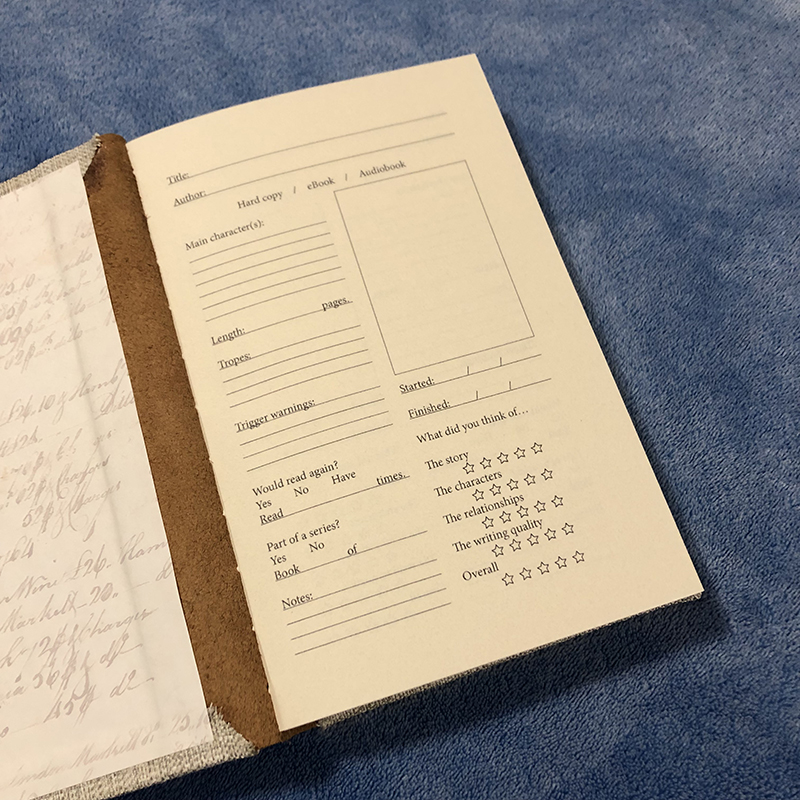 Title:
Author:
Hard copy / eBook / Audiobook
Main character(s):
Length: pages.
Tropes:
Trigger warnings:
Would read again?
Yes No Have
Read times.
Part of a series?
Yes No
Book of
Notes:
Started: / /
Finished: / /
What did you think of…
The story
The characters
The relationships
The writing quality
Overall
Charges
Markell 20.
Charges